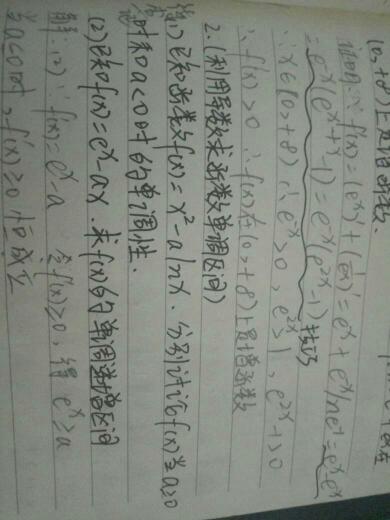 (0,+∞)上是增函数.
证明:∵f'(x)=(eˣ)'+(1/eˣ)'=eˣ+e⁻ˣlne⁻¹=eˣ-e⁻ˣ
=e⁻ˣ(eˣ⁺ˣ-1)=e⁻ˣ(e²ˣ-1) 技巧
∵x∈(0,+∞) ∴e⁻ˣ>0, e²ˣ>1, e²ˣ-1>0
∴f'(x)>0 ∴f(x)在(0,+∞)上是增函数
2.(利用导数求函数单调区间)
(1)已知函数f(x)=x²-alnx.分别讨论f(x)当a≥0
时和a<0时的单调性.
(2)已知f(x)=eˣ-ax.求f(x)的单调递增区间
解:(2)∵f'(x)=eˣ-a 令f'(x)≥0,得eˣ≥a
当a≤0时,f'(x)≥0恒成立